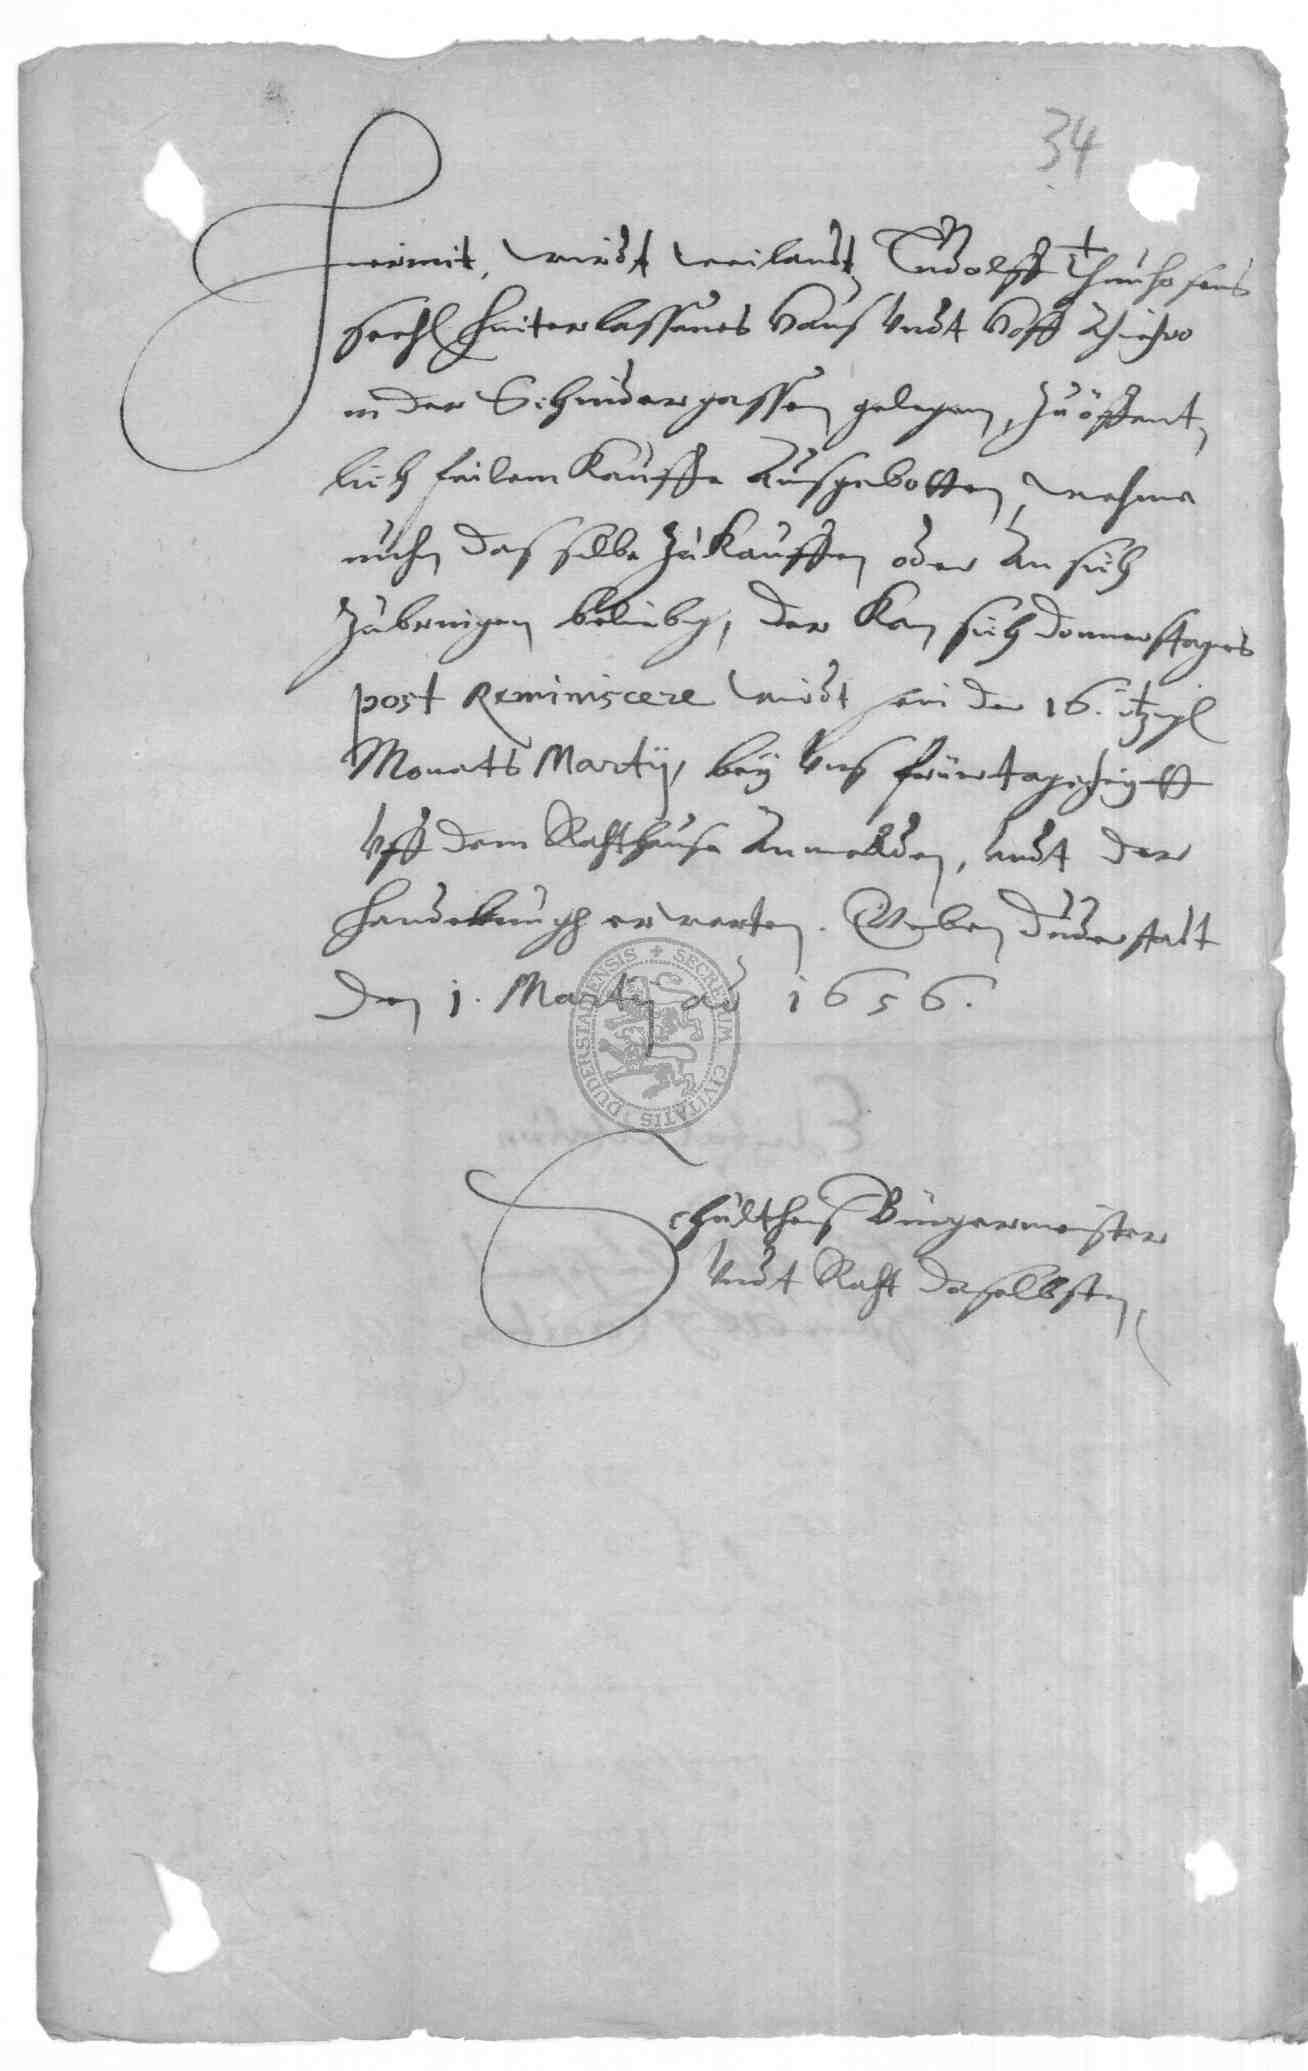 34
Hiermit, wirdt weilandt Rudolff
seehl hinterlassenes Hauß undt Hoff alhiehro
in der Schindergassen gelegen, zu öffent,
lich feilem Kauffe Außgebotten, wehme
nuhn dasselbe zu Kauffen oder an sich
zubringen beliebig, der Kan sich donnerstages
post Reminiscere wirdt sein der 16.
Monats Martij, bey Uns früer tagezeigtt
Uff dem Rahthause anmelden, undt der
handelungh erwarten. Geben Duderstatt
den 1. Martij aõ 1656.
SECRETUM CIVITATIS DUDERSTADIENSIS
Schultheß Bürgermeister
Undt Raht daselbsten